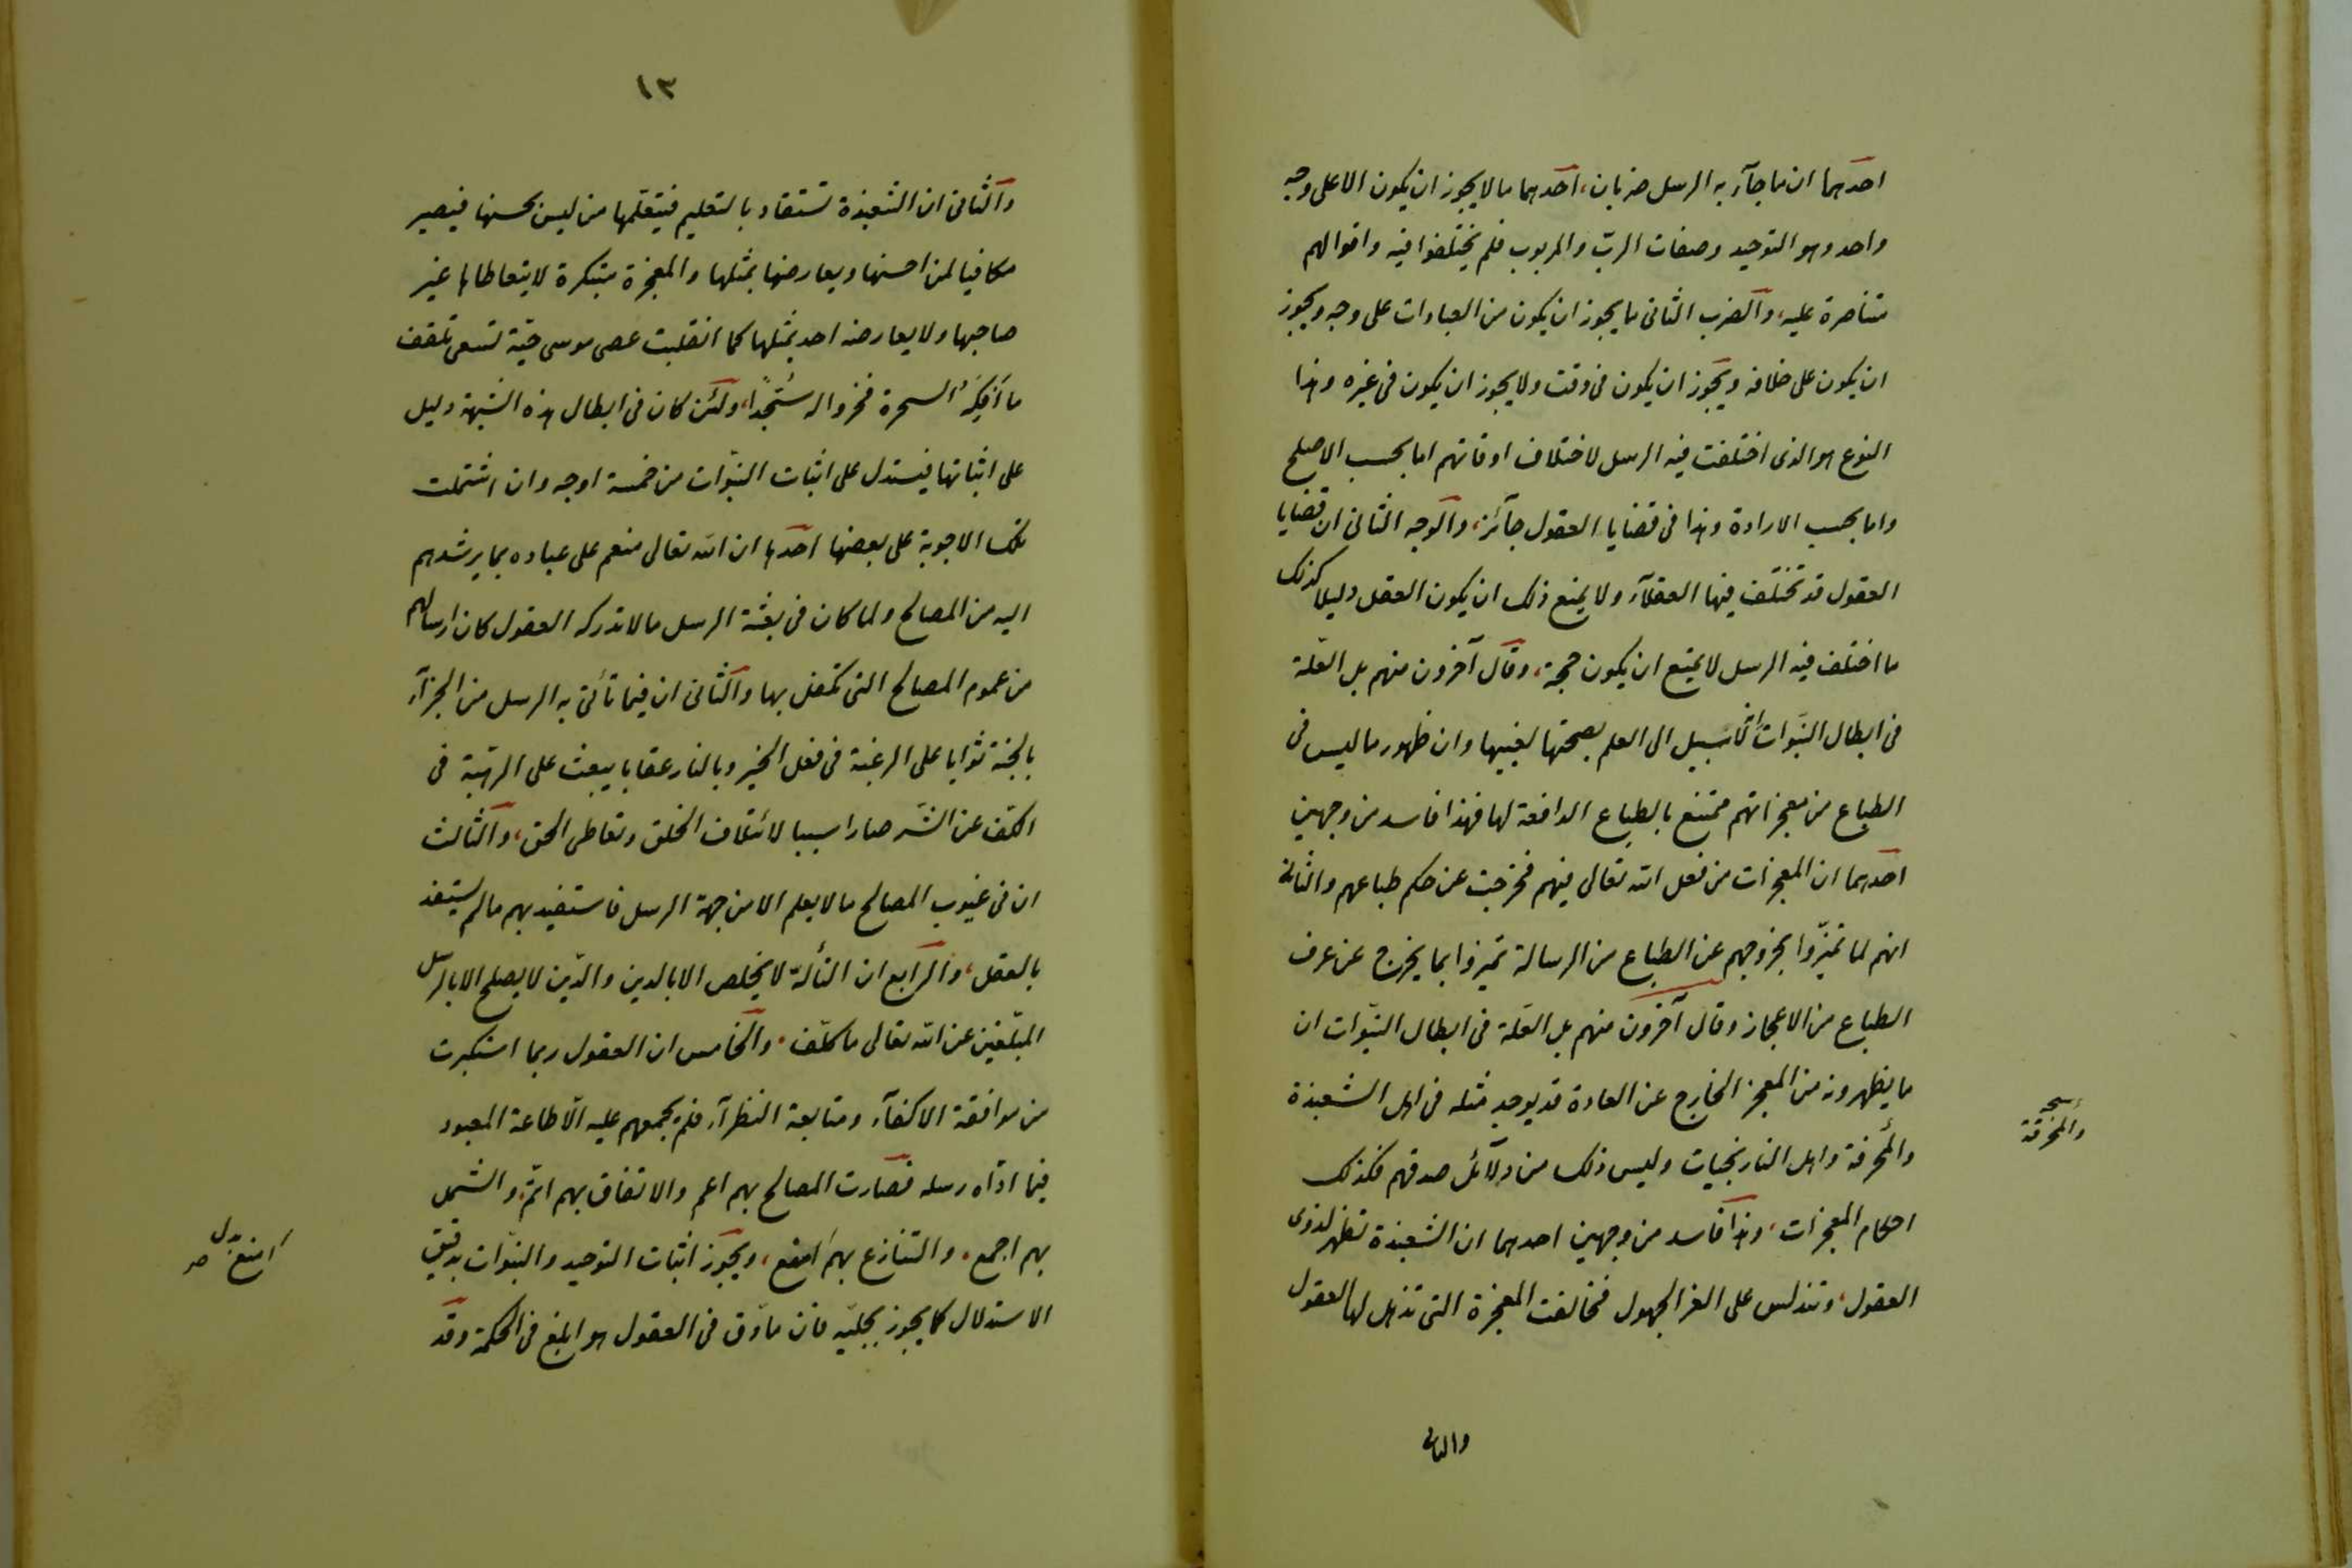 احدهما ان ما جآء به الرسل ضربان، احدهما ما لا يجوز ان يكون الا على وجه
واحد وهو التوحيد وصفات الربّ والمربوب فلم يختلفوا فيه واقوالهم
متناصرة عليه، والضرب الثانى ما يجوز ان يكون من العبادات على وجه ويجوز
ان يكون على خلافه ويجوز ان يكون فى وقت ولا يجوز ان يكون فى غيره وهذا
النوع هو الذى اختلفت فيه الرسل لاختلاف اوقاتهم اما بحسب الاصلح
واما بحسب الارادة وهذا فى قضايا العقول جآئز، والوجه الثانى ان قضايا
العقول قد تختلف فيها العقلآء ولا يمنع ذلك ان يكون العقل دليلا كذلك
ما اختلف فيه الرسل لا يمنع ان يكون حجة، وقال آخرون منهم بل العلّة
فى ابطال النبّوات ان لا سبيل الى العلم بصحتها لغيبها وان ظهور ما ليس فى
الطباع من معجزاتهم ممتنع بالطباع الدافعة لها فهذا فاسد من وجهين
احدهما ان المعجزات من فعل الله تعالى فيهم فخرجت عن حكم طباعهم والثانى
انهم لما تميّزوا بخروجهم عن الطباع من الرسالة تميزوا بما يخرج عن عرف
الطباع من الاعجاز وقال آخرون منهم بل العلّة فى ابطال النبّوات ان
ما يظهرونه من المعجز الخارج عن العادة قد يوجد مثله فى اهل الشعبذة
والمخرفة واهل النارنجيات وليس ذلك من دلآئل صدقهم فكذلك
احكام المعجزات، وهذا فاسد من وجهين احدهما ان الشعبذة تظهر لذوى
العقول، وتندلس على الغر الجهول فخالفت المعجزة التى تذهل لها العقول
والثانى
نسخه
والمخرقة
١٣
والثانى ان الشعبذة تستفاد بالتعليم فيتعلّمها من ليس يحسنها فيصير
مكافيا لمن احسنها ويعارضها بمثلها والمعجزة مبتكرة لا يتعاطاها غير
صاحبها ولا يعارضه احد بمثلها كما انقلبت عصى موسى حيّة تسعى تلقف
ما أفكه السحرة فخروا له سُجّدًا، ولئن كان فى ابطال هذه الشبهة دليل
على اثباتها فيستدل على اثبات النبّوات من خمسة اوجه وان اشتملت
تلك الاجوبة على بعضها احدها ان الله تعالى منعم على عباده بما يرشدهم
اليه من المصالح ولما كان فى بعثة الرسل ما لا تدركه العقول كان ارسالهم
من عموم المصالح التى تكفل بها والثانى ان فيما تأتى به الرسل من الجزآء
بالجنة ثوابا على الرغبة فى فعل الخير وبالنار عقابا يبعث على الرهبة فى
الكف عن الشّر صارا سببا لائتلاف الخلق وتعاطى الحق، والثالث
ان فى غيوب المصالح ما لا يعلم الا من جهة الرسل فاستفيد بهم ما لم يستفد
بالعقل، والرابع ان التألّه لا يخلص الا بالدين والدّين لا يصلح الا بالرسل
المبلّغين عن الله تعالى ما كلّف، والخامس ان العقول ربما استكبرت
من موافقة الاكفآء ومتابعة النظرآء فلم يجمعهم عليه الّا طاعة المعبود
فيما ادّاه رسله فصارت المصالح بهم اعم والاتفاق بهم اتمّ، والشمل
بهم اجمع، والتنازع بهم امقع، ويجوز اثبات التوحيد والنبّوات بدقيق
الاستدلال كما يجوز بجليّه فان ما دّق فى العقول هو ابلغ فى الحكمة وقد
امنع بدل صح